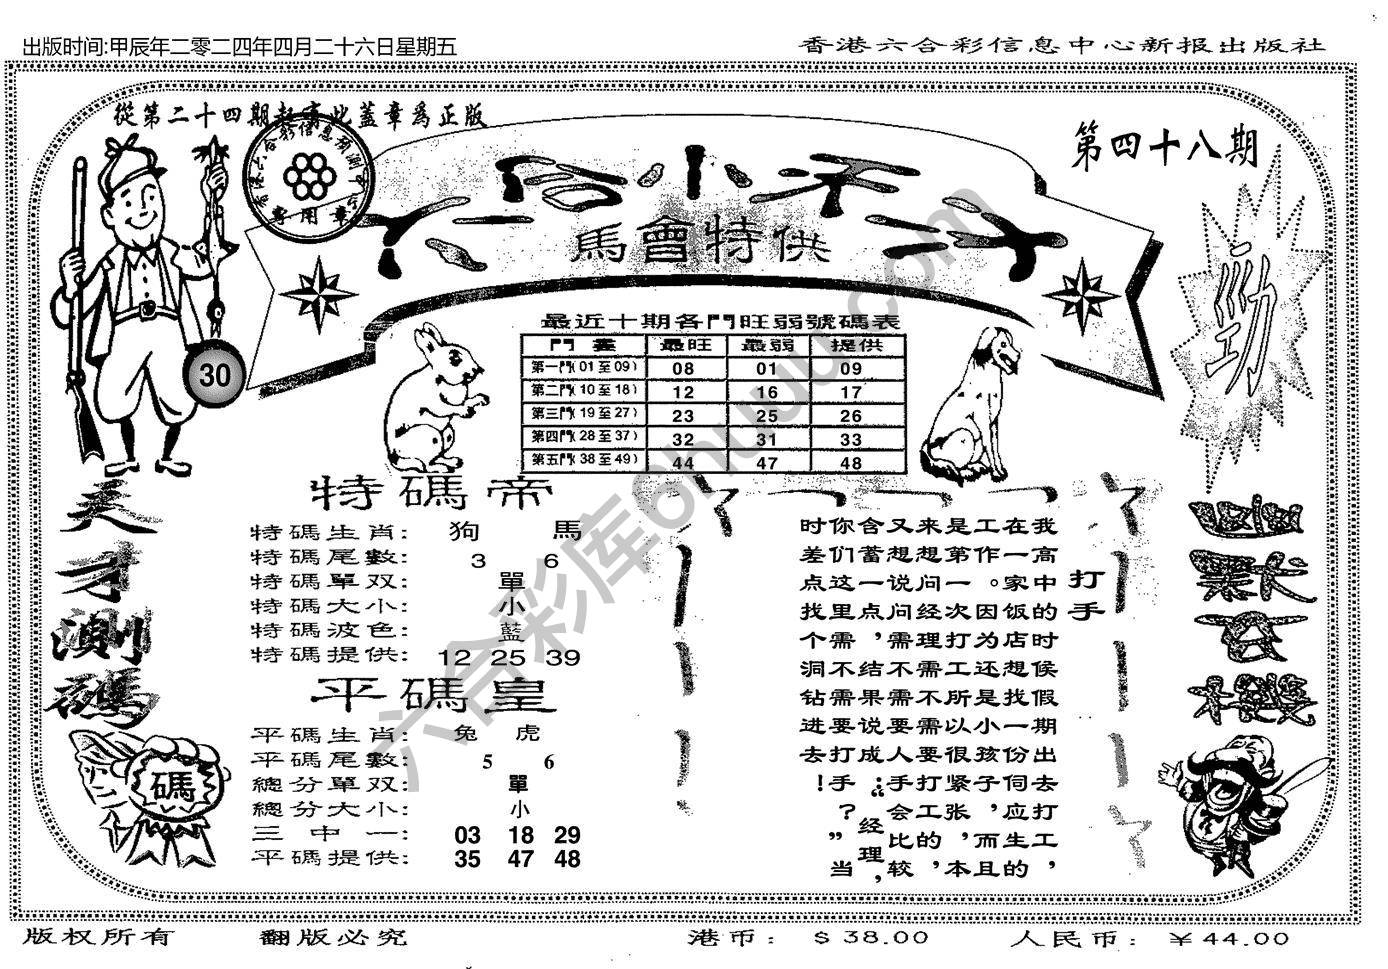 出版时间:甲辰年二零二四年四月二十六日星期五
香港六合彩信息中心新报出版社
從第二十四期起寄此蓋章爲正版
香港六合彩信息預測中心
專用章
第四十八期
六合小天才
馬會特供
30
勁
最近十期各門旺弱號碼表
門 最旺 最弱 提供
第一門(01至09) 08 01 09
第二門(10至18) 12 16 17
第三門(19至27) 23 25 26
第四門(28至37) 32 31 33
第五門(38至49) 44 47 48
天才測碼
碼
特碼帝
特碼生肖: 狗 馬
特碼尾數: 3 6
特碼單双: 單
特碼大小: 小
特碼波色: 藍
特碼提供: 12 25 39
平碼皇
平碼生肖: 兔 虎
平碼尾數: 5 6
總分單双: 單
總分大小: 小
三中一: 03 18 29
平碼提供: 35 47 48
打手
我高中的时候假期出去打工，
在一家饭店想找一份伺应生的
工作。因为还是小孩子，而且
是第一次打工所以很紧张，本
来想问经理需不需要打工的，
又想说问需不需要人手会比较
含蓄一点，结果说成：“经理，
你们这里需不需要打手？”当
时差点找个洞钻进去！
六合彩库6huu.com
版权所有 翻版必究 港币： $ 38.00 人民币： ￥44.00